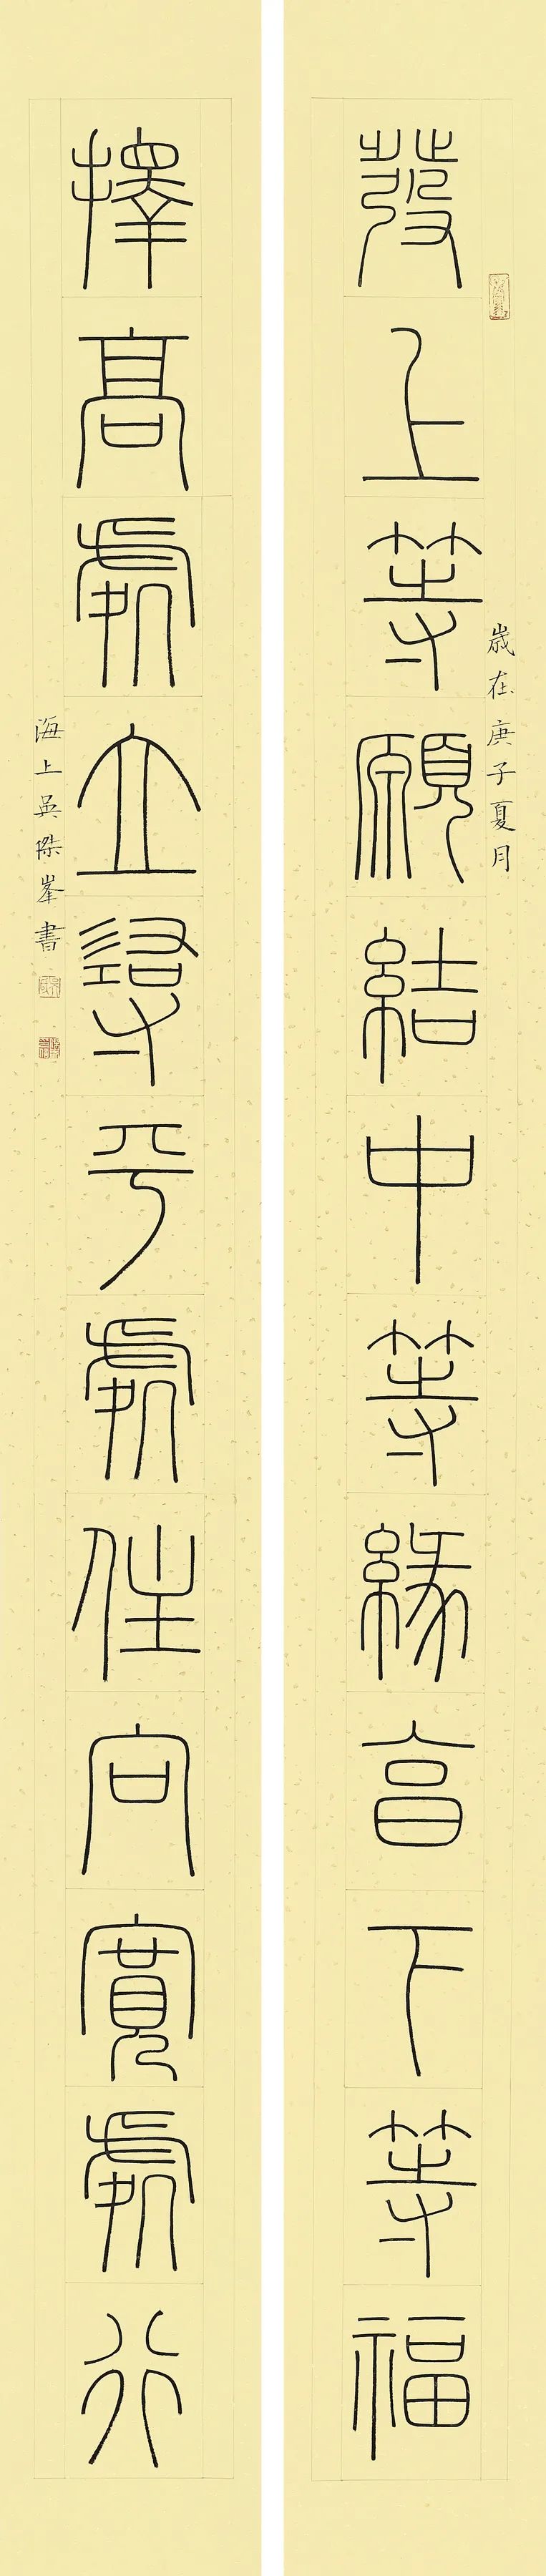 發上等願結中等緣享下等福
歲在庚子夏月
擇高處立尋平處住向寬處行
海上吳傑峯書